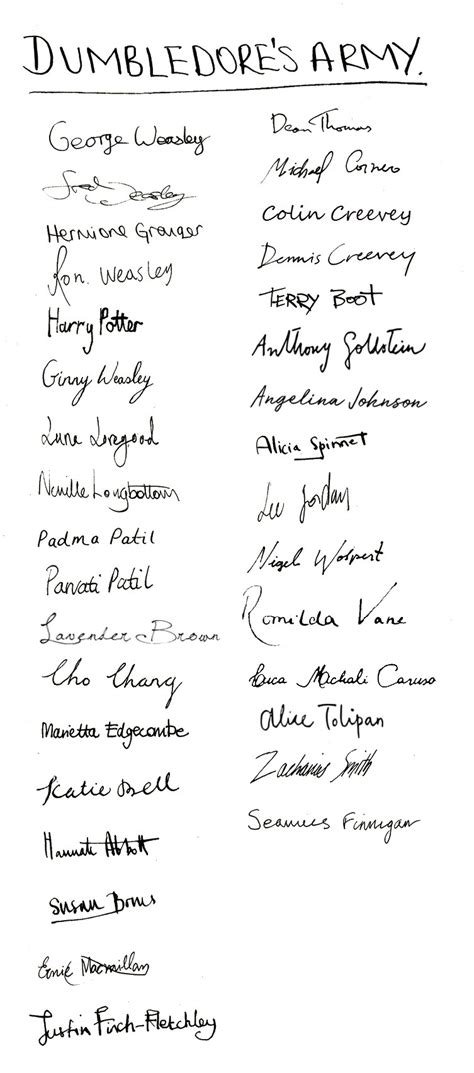 DUMBLEDORE'S ARMY.
George Weasley
Fred Weasley
Hermione Granger
Ron. Weasley
Harry Potter
Ginny Weasley
Luna Lovegood
Neville Longbottom
Padma Patil
Parvati Patil
Lavender Brown
Cho Chang
Marietta Edgecombe
Katie Bell
Hannah Abbott
Susan Bones
Ernie Macmillan
Justin Finch-Fletchley
Dean Thomas
Michael Corner
Colin Creevey
Dennis Creevey
TERRY BOOT
Anthony Goldstein
Angelina Johnson
Alicia Spinnet
Lee Jordan
Nigel Wolpert
Romilda Vane
Machali Caruso
Alice Tolipan
Zacharias Smith
Seamus Finnigan